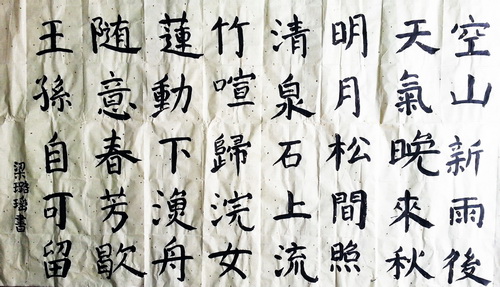 空山新雨後
天氣晚來秋
明月松間照
清泉石上流
竹喧歸浣女
蓮動下漁舟
随意春芳歇
王孫自可留
梁璐瑋書